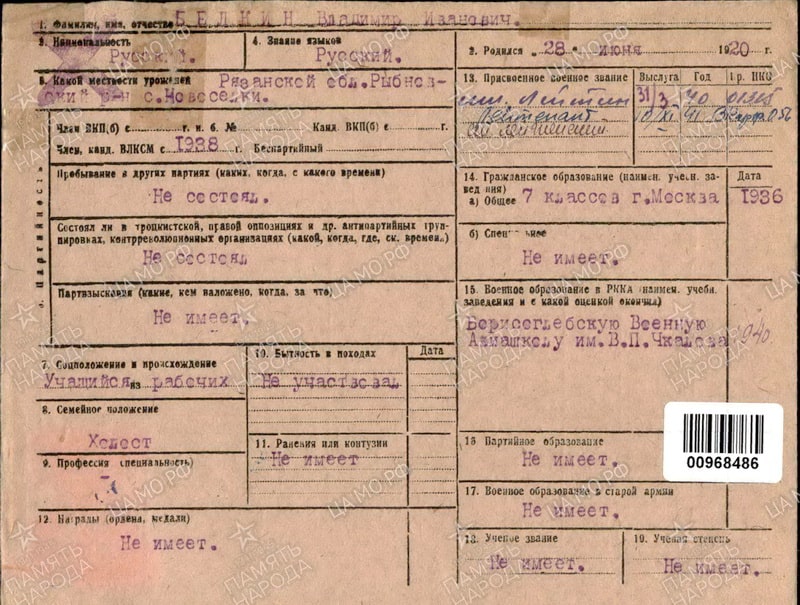 1. Фамилия, имя, отчество БЕЛКИН Владимир Иванович.
3. Национальность
Русский.
4. Знание языков
Русский.
2. Родился „ 28 " июня 1920 г.
5. Какой местности уроженец Рязанской обл.Рыбнов-
ский р-н с.Новоселки.
13. Присвоенное военное звание
Выслуга
Год
Пр. НКО
мл. Лейтен 31/3 40 01315
Лейтенант 10/XI 41
ст лейтенант
Партийность
Член ВКП(б) с г. п. б. № Канд. ВКП(б) с г.
Член, канд. ВЛКСМ с 1938 г. Беспартийный
Пребывание в других партиях (каких, когда, с какого времени)
Не состоял.
Состоял ли в троцкистской, правой оппозициях и др. антипартийных груп-
пировках, контрреволюционных организациях (какой, когда, где, ск. времени)
Не состоял
Партвзыскания (какие, кем наложено, когда, за что)
Не имеет.
14. Гражданское образование (наимен. учебн. за-
ведения)
Дата
а) Общее 7 классов г.Москва 1936
б) Специальное
Не имеет.
15. Военное образование в РККА (наимен. учебн.
заведения и с какой оценкой окончил)
Борисоглебскую Военную
Авиашколу им.В.П.Чкалова 1940.
7. Соцположение и происхождение
Учащийся из рабочих
10. Бытность в походах
Дата
Не участвовал
8. Семейное положение
Холост
9. Профессия (специальность)
11. Ранения или контузии
Не имеет
12. Награды (ордена, медали)
Не имеет.
16. Партийное образование
Не имеет.
17. Военное образование в старой армии
Не имеет.
18. Ученое звание
Не имеет.
19. Ученая степень
Не имеет.
00968486
ПАМЯТЬ НАРОДА
ЦАМО.РФ